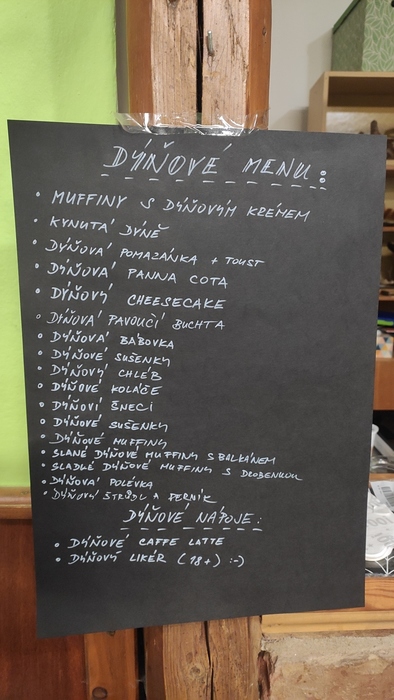 DÝŇOVÉ MENU:
• MUFFINY S DÝŇOVÝM KRÉMEM
• KYNUTÁ DÝNĚ
• DÝŇOVÁ POMAZÁNKA + TOUST
• DÝŇOVÁ PANNA COTA
• DÝŇOVÝ CHEESECAKE
• DÝŇOVÁ PAVOUČÍ BUCHTA
• DÝŇOVÁ BÁBOVKA
• DÝŇOVÉ SUŠENKY
• DÝŇOVÝ CHLÉB
• DÝŇOVÉ KOLÁČE
• DÝŇOVÍ ŠNECI
• DÝŇOVÉ SUŠENKY
• DÝŇOVÉ MUFFINY
• SLANÉ DÝŇOVÉ MUFFINY S BALKÁNEM
• SLADKÉ DÝŇOVÉ MUFFINY S DROBENKOU
• DÝŇOVÁ POLÉVKA
• DÝŇOVÝ ŠTRŮDL A PERNÍK
DÝŇOVÉ NÁPOJE:
• DÝŇOVÉ CAFFE LATTE
• DÝŇOVÝ LIKÉR (18+) :-)